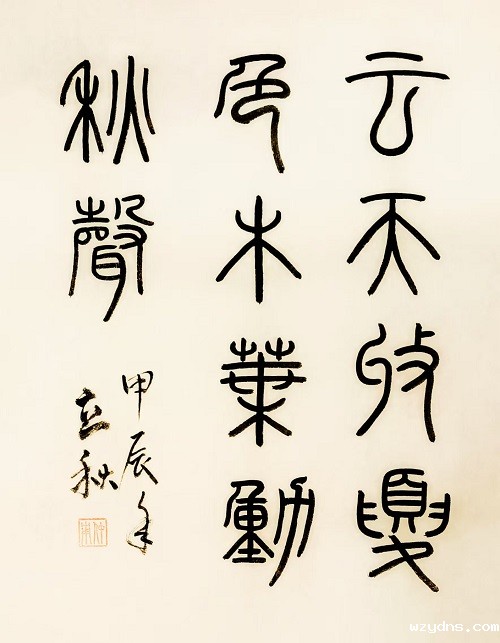 云天收夏
色木葉動
秋聲
甲辰年
立秋
wzydns.com